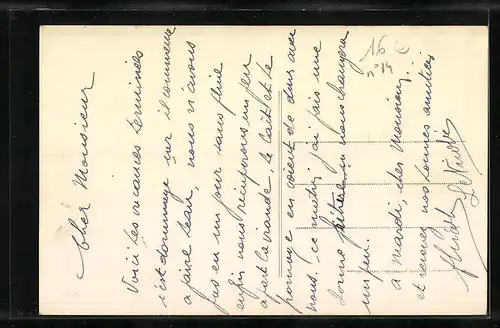 Cher Monsieur
Voici les vacances terminées
c'est dommage car il commence
à faire beau, nous n'avons
pas eu un jour sans pluie
enfin nous récupérons un peu
à part la viande, le lait et le
fromage on vient de dans avec
nous. ce matin j'ai fais une
bonne friture nous changera
un peu.
à mardi, cher Monsieur.
et recevez nos bonnes amitiés
16 €
n° 14